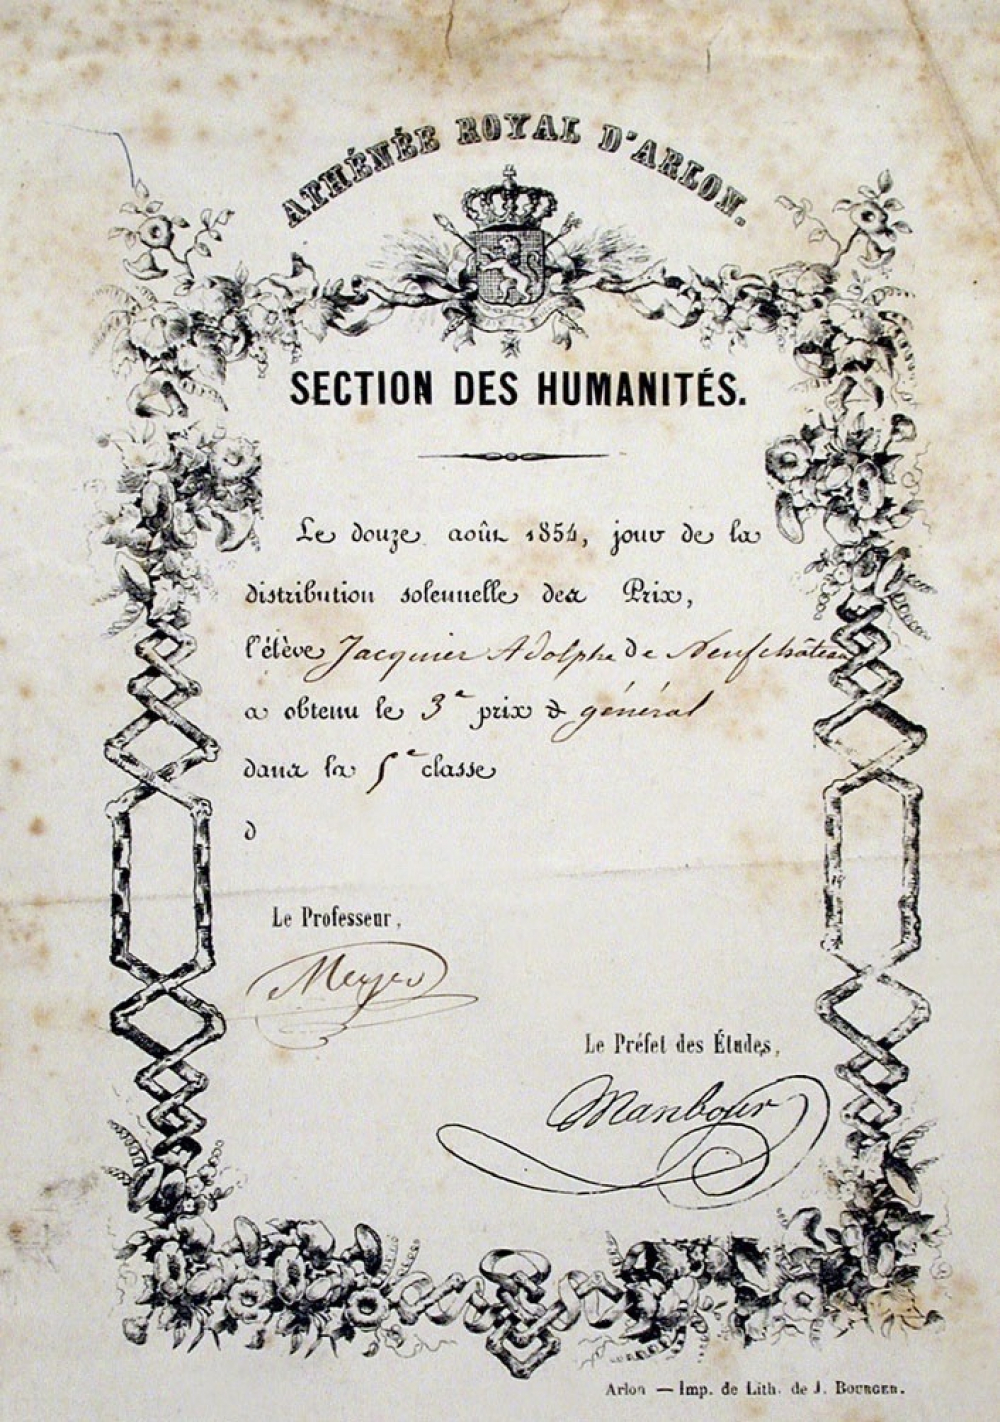 ATHÉNÉE ROYAL D'ARLON.
SECTION DES HUMANITÉS.
Le douze août 1854, jour de la
distribution solennelle des Prix,
l'élève Jacquier Adolphe de Neufchâteau
a obtenu le 3e prix d général
dans la 5e classe
d
Le Professeur,
Meyer
Le Préfet des Études,
Manbour
Arlon — Imp. de Lith. de J. BOURGER.